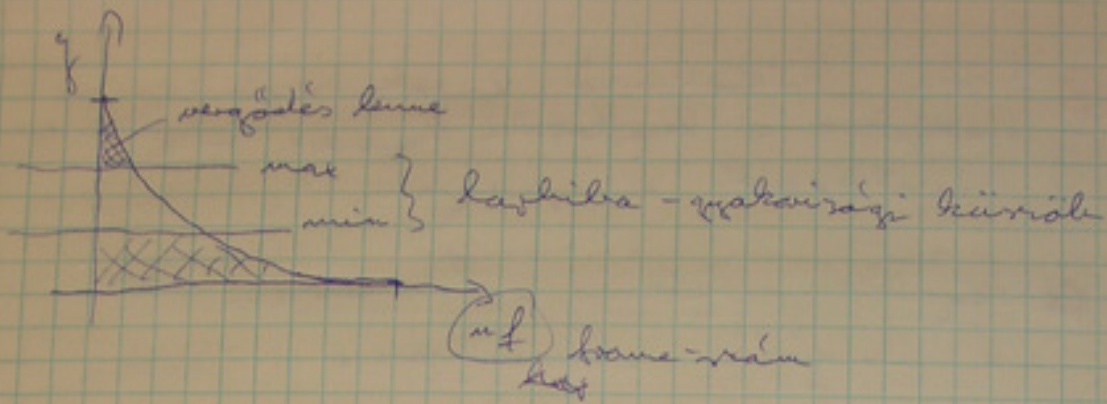 vergődés lenne
max
min } laphiba-gyakorisági küszöb
frame-szám